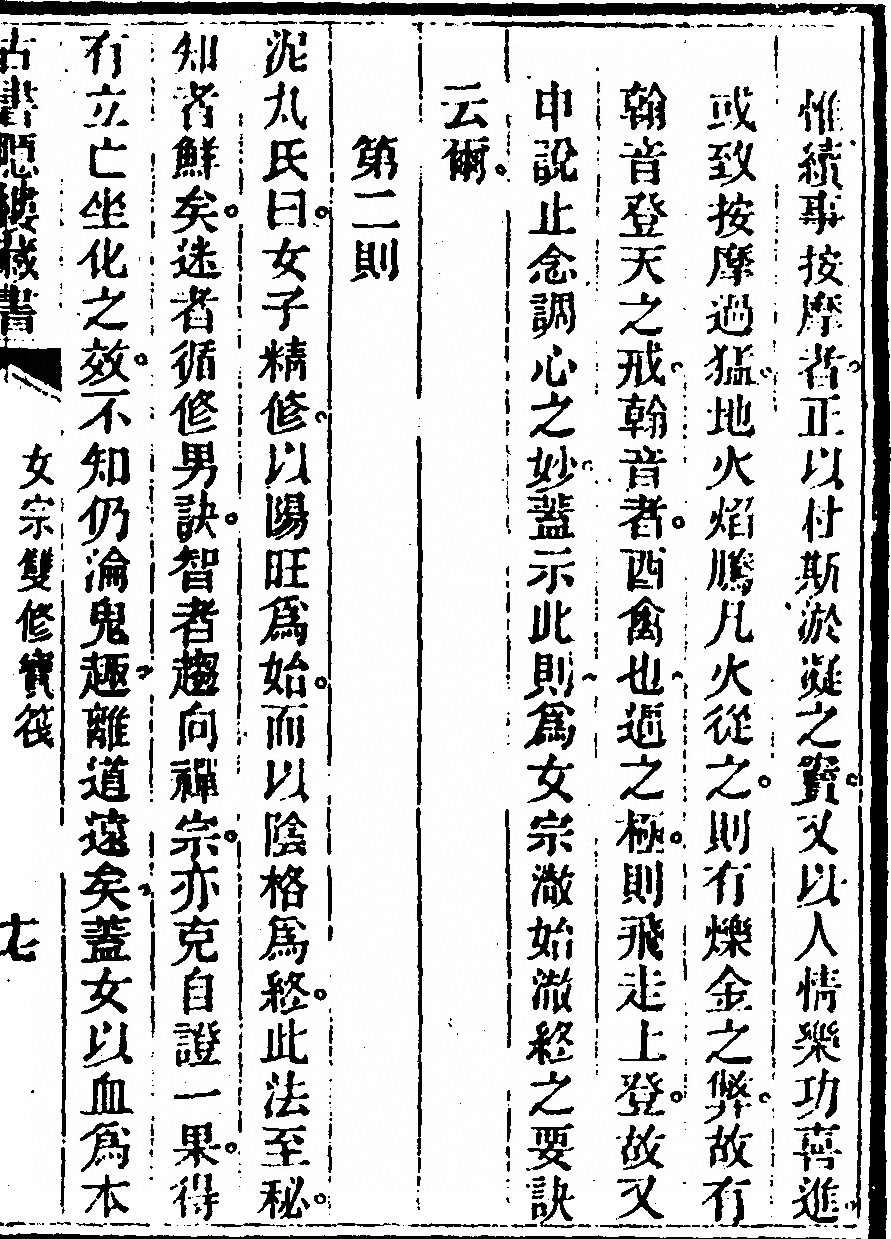 惟續事按摩者。正以付斯淤凝之竇。又以人情樂功喜進。
或致按摩過猛。地火焰騰凡火從之。則有爍金之弊。故有
翰音登天之戒。翰音者。酉禽也、逼之極。則飛走上登。故又
申說止念調心之妙。蓋示此則、爲女宗澈始澈終之要訣
云爾。
第二則
泥丸氏曰。女子精修。以陽旺爲始。而以陰格爲終。此法至秘。
知者鮮矣。迷者循修男訣。智者趨向禪宗。亦克自證一果。得
有立亡坐化之效。不知仍淪鬼趣、離道遠矣、蓋女以血爲本
古書隱樓藏書
女宗雙修寶筏
七